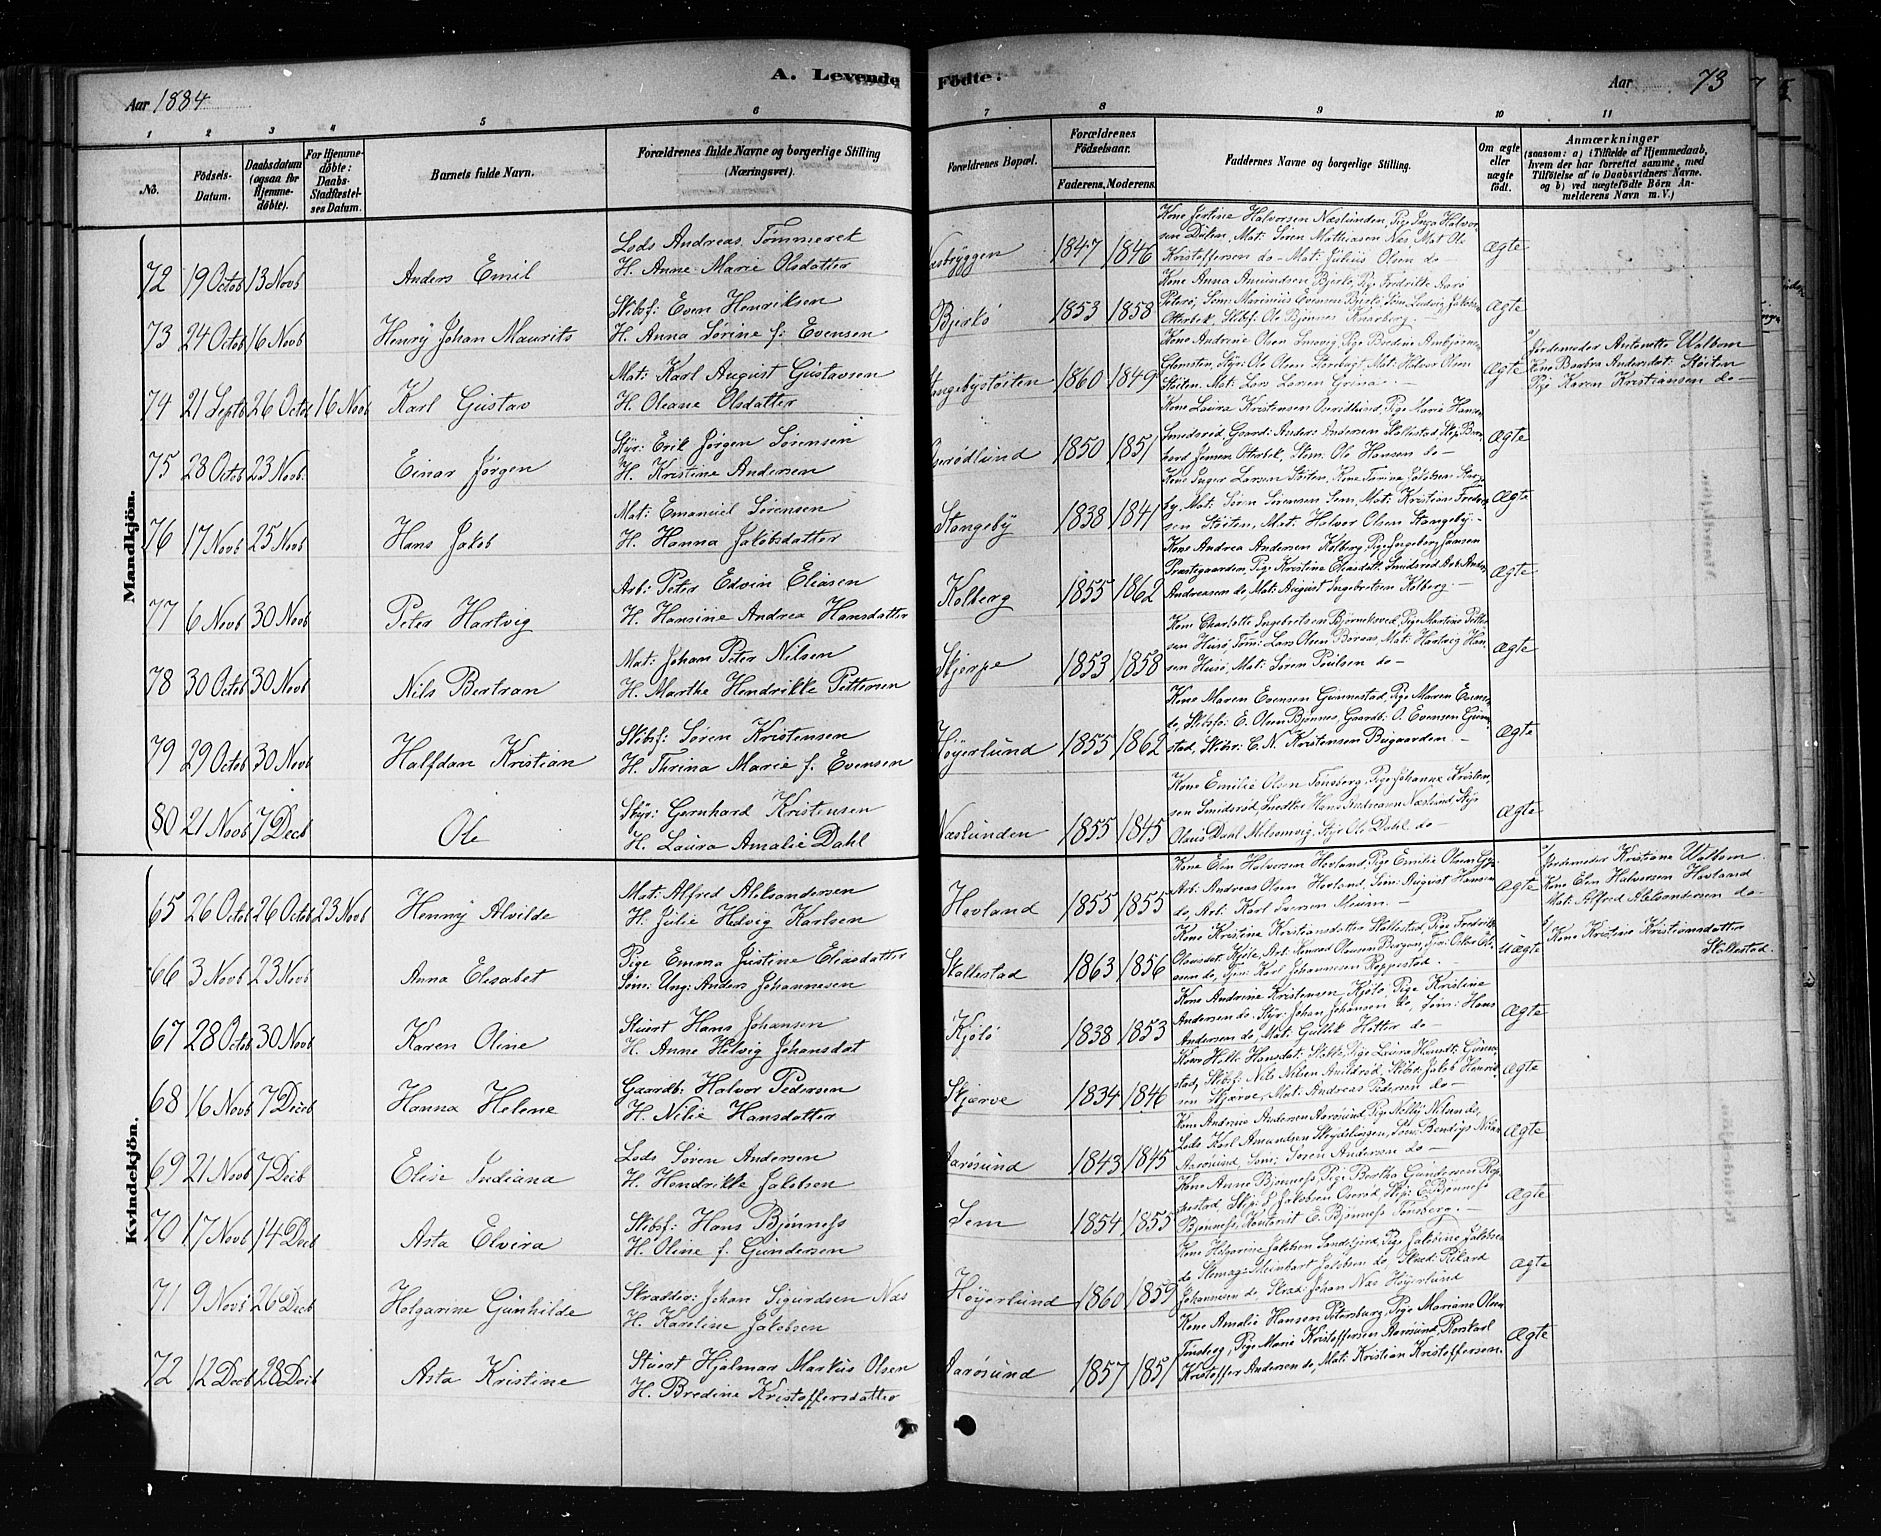 A. Levende Födte:
Aar 1884
Aar 73
1 2 3 4 5 6 7 8 9 10 11
No.
Födsels-Datum.
Daabsdatum (ogsaa for Hjemme-döbte).
For Hjemme-döbte: Daabs-Stadfæstel-ses Datum.
Barnets fulde Navn.
Forældrenes fulde Navne og borgerlige Stilling (Næringsvei).
Forældrenes Bopæl.
Forældrenes Födselsaar.
Faderens. Moderens.
Faddernes Navne og borgerlige Stilling.
Om ægte eller uægte födt.
Anmærkninger
(saasom: a) i Tilfælde af Hjemmedaab, hvem der har forrettet samme, med Tilföielse af to Daabsvidners Navne. og b) ved uægtefödte Börn An-melderens Navn m. V.)
Mandkjön.
72 19 Octob 13 Novb Anders Emil
Lods Andreas Tömmeret
H. Anne Marie Olsdatter
Næsbryggen 1847 1846
Kone Jertine Halvorsen Næslunden, Pige Inga Halvor-
sen Döken, Mat: Sören Mathiasen Næs, Mat Ole
Kristoffersen do - Mat: Julius Olsen do -
Ægte
73 24 Octob 16 Novb Henry Johan Maurits
Skibsf: Even Henriksen
H. Anna Sörine f: Evensen
Bjerkö 1853 1858
Kone Anna Amundsen Bjerkö, Pige Fredrikke Aarö
Ægte
74 21 Septb 26 Octob 16 Novb Karl Gustav
Mat: Karl August Gustavsen
H. Oleane Olsdatter
Stangebystöiten 1860 1849
Ægte
a) Jordemoder Antonette Walbom
Kone Barbra Andersdat: Stöiten
Pige Karen Kristiansen do -
75 28 Octob 23 Novb. Einar Jörgen
Styr: Erik Jörgen Sörensen
H. Kristine Andersen
Oserödlund 1850 1851
Kone Laura Kristensen Oserödlund, Pige Marie Hansen
Smidsröd Gaard: Anders Andersen Stallestad
Ægte
76 17 Novb 25 Novb Hans Jakob
Mat: Emanuel Sörensen
H. Hanna Jakobsdatter
Stangeby 1838 1841
Kone Inger Larsen Stöiten, Kone Tarine Jakobsen Stange-
by, Mat: Sören Sörensen Sem, Mat: Kristian Fredrik-
sen Stöiten, Mat: Halvor Olsen Stangeby -
Ægte
77 6 Novb 30 Novb Peter Hartvig
Arb: Peter Edvin Eliasen
H. Hansine Andrea Hansdatter
Kolberg 1855 1862
Kone Andrea Andersen Kolberg, Pige Ingeborg Jansen
Præstegaarden, Pige Kristine Eliasdatt: Smidsröd Arb: Anders
Andreasen do, Mat: August Ingebretsen Kolberg. -
Ægte
78 30 Octob 30 Novb Nils Bertran
Mat: Johan Peter Nilsen
H. Marthe Hendrikke Pettersen
Skjerpe 1853 1858
Kone Charlotte Ingebretsen Bjørneksved, Pige Martine Petter-
sen Husö, Töm: Lars Olsen Boroas, Mat: Hartvig Han-
sen Husö, Mat: Sören Poulsen do -
Ægte
79 29 Octob 30 Novb Halfdan Kristian
Skibsf: Sören Kristensen
H. Thrina Marie f. Evensen
Höyerlund 1855 1862
Kone Maren Evensen Gunnestad, Pige Maren Evensen
do, Skibsfö: E. Olsen Bjönnes, Gaardb: O. Evensen Gunne-
stad, Skibr: C. N. Kristensen Bugaarden. -
Ægte
80 21 Novb 7 Decb Ole
Styr: Gernhard Kristensen
H. Laura Amalie Dahl
Næslunden 1855 1845
Kone Emilie Olsen Tönsberg, Pige Johanne Kristen-
sen Smidsröd, Snedker Hans Andreasen Næslund, Styr
Olaus Dahl Melsomvig, Styr Ole Dahl do -
Ægte
Kvindekjön.
65 26 Octob 26 Octob 23 Novb Henny Alvilde
Mat: Alfred Aleksandersen
H. Julie Helvig Karlsen
Hovland 1855 1855
Kone Elen Halvorsen Hovland, Pige Emilie Olsen
Arb: Andreas Olsen Hovland, Töm: August Hansen
do, Arb: Karl Iversen Meum. -
Ægte
a) Jordemoder Kristiane Walbom
Kone Elen Halvorsen Hovland
Mat: Alfred Aleksandersen do -
66 3 Novb 23 Novb Anna Elisabet
Pige Emma Justine Eliasdatter
Töm: Ung: Anders Johannesen
Stallestad 1863 1856
Kone Kristine Kristiansdatter Stallestad, Pige Fredrikke
Olausdat: Kjole, Arb: Konrad Olausen Bergan, Töm: Oskar Ole-
sen do, Töm: Karl Johannesen Roppestad. -
Uægte
b) Kone Kristine Kristiansdatter
Stallestad.
67 28 Octob 30 Novb Karen Oline
Stuert Hans Johansen
H. Anne Helvig Johansdat
Kjölö 1838 1853
Kone Andrine Kristensen Kjölö, Pige Kristine
Andersen do. Styr: Johan Johansen do, Töm: Hans
Andersen do, Mat: Gullik Hotter do -
Ægte
68 16 Novb 7 Decb Hanna Helene
Gaardb: Halvor Pedersen
H. Nilie Hansdatter
Skjærve 1834 1846
Kone Helle Hansdat: Stokke, Pige Laura Hansdt: Gunne-
stad, Skibsf: Nils Nilsen Auldröd, Skibsr: Jakob Henrik-
sen Skjærve, Mat: Andreas Pedersen do -
Ægte
69 21 Novb 7 Decb Elise Indiana
Lods Sören Andersen
H. Hendrikke Jakobsen
Aarösund 1843 1845
Kone Andrine Andersen Aarösund, Pige Nelly Nilsen do,
Lods Karl Amundsen Stöydslingen, Töm: Bendigs Nilsen
Aarösund, Töm: Sören Andersen do -
Ægte
70 17 Novb 14 Decb Asta Elvira
Skibsf: Hans Bjönness
H. Oline f. Gundersen
Sem 1854 1855
Kone Anne Bjönness, Pige Bertha Gundersen Rop-
pestad, Skip: S. Jakobsen Oseröd, Skip: E. Bjönness
Bjönness, Kontorist E. Bjönness Tönsberg. -
Ægte
71 9 Novb 26 Decb Holgarine Gunhilde
Skrædder: Johan Sigurdsen Næs
H. Karoline Jakobsen
Höyerlund 1860 1859
Kone Holgarine Jakobsen Sandefjord, Pige Jakobine Jakobsen
do, Stenmag: Meinhart Jakobsen do, Skræd: Rikard
Johannesen do, Skræd: Johan Næs Höyerlund
Ægte
72 12 Decb 28 Decb Asta Kristine
Stuert Hjalmar Markus Olsen
H. Bredine Kristoffersdatter
Aarösund 1857 1851
Kone Amalie Hansen Petersburg, Pige Mariane Olsen
Tönsberg, Pige Marie Kristoffersen Aarösund, Rorskarl
Kristoffer Andersen do, Mat: Kristian Kristoffersen
Ægte